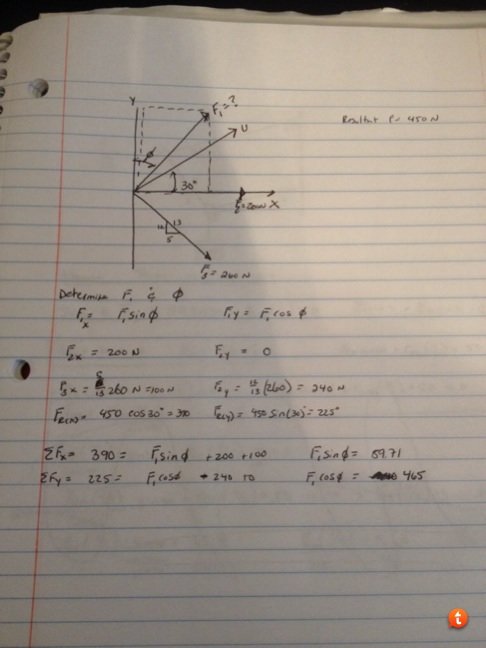 Y
F₁ = ?
U
Resultant = 450 N
φ
30°
F₂=200N X
12 13
5
F₃ = 260 N
Determine F₁ & φ
F₁x = F₁ sin φ F₁y = F₁ cos φ
F₂x = 200 N F₂y = 0
F₃x = 5/13 260 N = 100 N F₂y = 12/13 (260) = 240 N
FR(x) = 450 cos 30° = 390 FR(y) = 450 sin(30)° = 225°
ΣFx = 390 = F₁ sin φ + 200 + 100 F₁ sin φ = 89.71
ΣFy = 225 = F₁ cos φ - 240 + 0 F₁ cos φ = 465
t